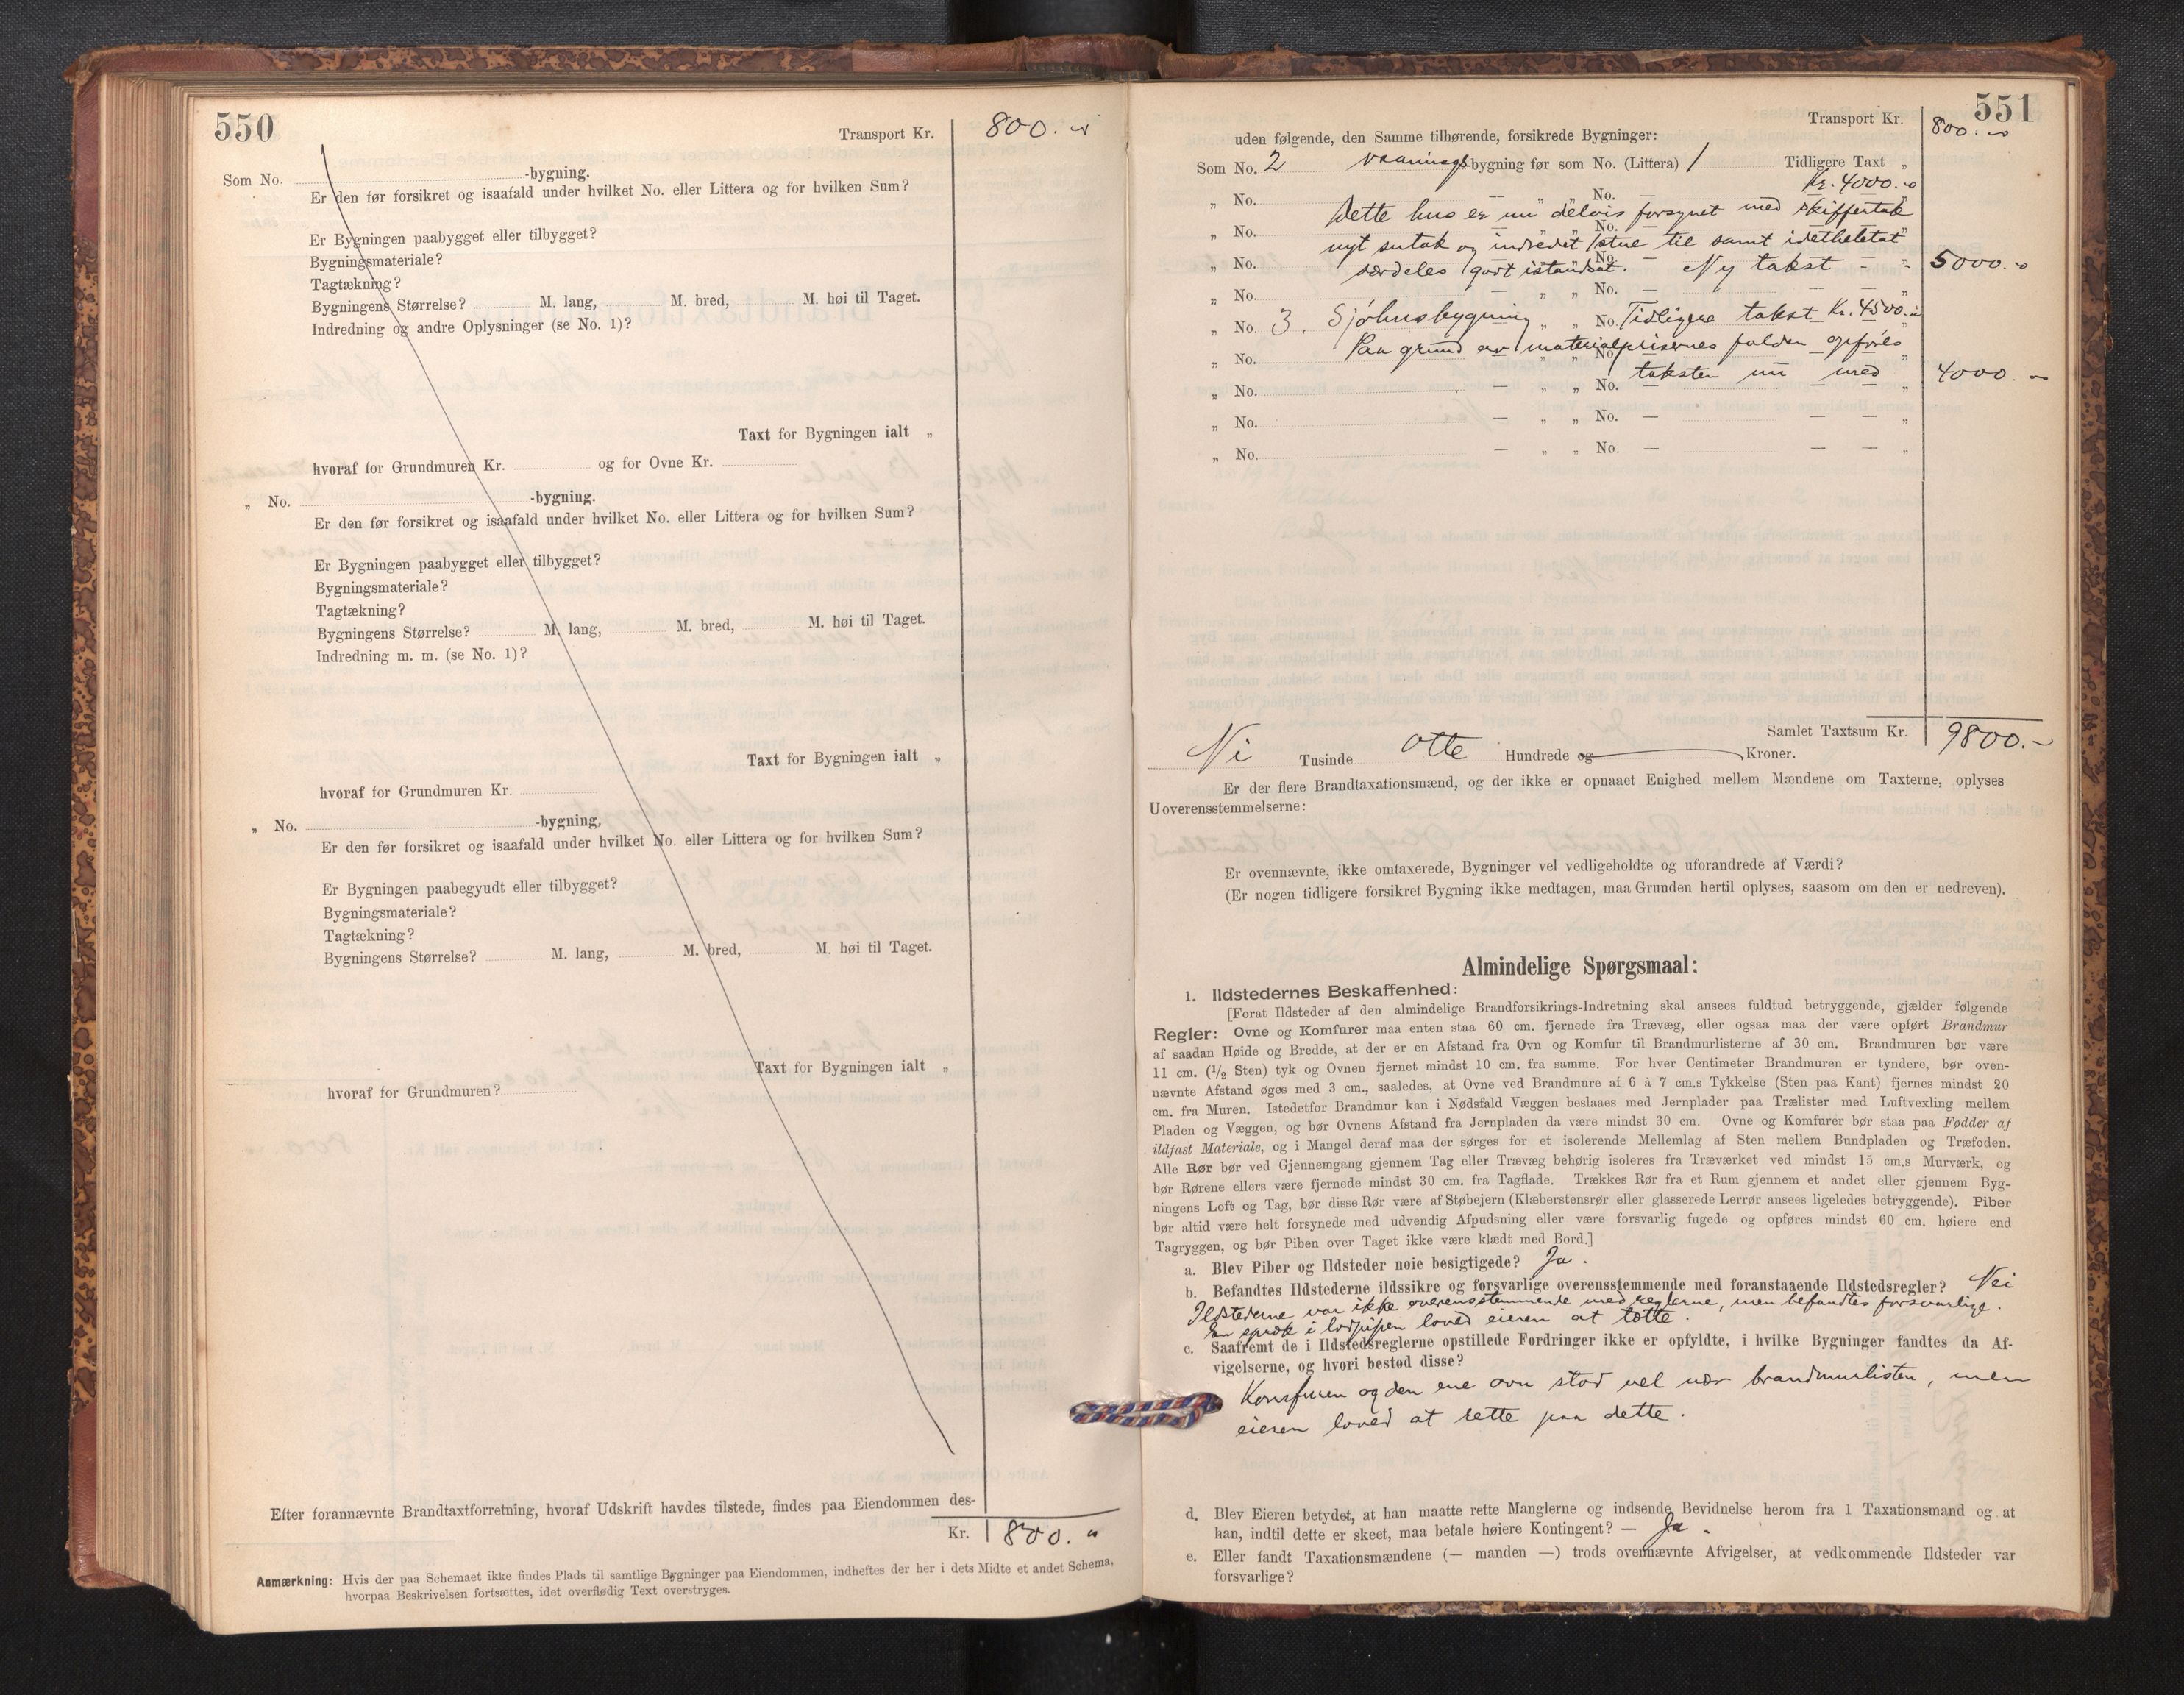 550
Transport Kr. 800. "
Som No. -bygning.
Er den før forsikret og isaafald under hvilket No. eller Littera og for hvilken Sum?
Er Bygningen paabygget eller tilbygget?
Bygningsmateriale?
Tagtækning?
Bygningens Størrelse? M. lang, M. bred, M. høi til Taget.
Indredning og andre Oplysninger (se No. 1)?
Taxt for Bygningen ialt „
hvoraf for Grundmuren Kr. og for Ovne Kr.
„ No. -bygning.
Er den før forsikret og isaafald under hvilket No. eller Littera og for hvilken Sum?
Er Bygningen paabygget eller tilbygget?
Bygningsmateriale?
Tagtækning?
Bygningens Størrelse? M. lang, M. bred, M. høi til Taget.
Indredning m. m. (se No. 1)?
Taxt for Bygningen ialt „
hvoraf for Grundmuren Kr.
„ No. -bygning,
Er den før forsikret og isaafald under hvilket No. eller Littera og for hvilken Sum?
Er Bygningen paabegyudt eller tilbygget?
Bygningsmateriale?
Tagtækning?
Bygningens Størrelse? M. lang, M. bred, M. høi til Taget.
Taxt for Bygningen ialt „
hvoraf for Grundmuren?
Efter forannævnte Brandtaxtforretning, hvoraf Udskrift havdes tilstede, findes paa Eiendommen des-
Kr. 800. "
Anmærkning: Hvis der paa Schemaet ikke findes Plads til samtlige Bygninger paa Eiendommen, indheftes der her i dets Midte et andet Schema,
hvorpaa Beskrivelsen fortsættes, idet overflødig Text overstryges.
551
Transport Kr. 800. "
uden følgende, den Samme tilhørende, forsikrede Bygninger:
Som No. 2 vaanings-bygning før som No. (Littera) 1 Tidligere Taxt „
Kr. 4000. "
„ No. — „ „ No. —
Dette hus er nu delvis forsynet med skiffertak
„ No. „ „ No.
nyt sutak og indredet 1 stue til samt idetheletat
„ No. — „ „ No. —
særdeles godt istandsat. Ny takst - - 5000. "
„ No. — „ „ No. — — — „
„ No. 3. Sjøhusbygning „ „ No. Tidligere takst Kr. 4500. "
Paa grund av materialprisernes falden opføres
„ No. No. „
taksten nu med 4000. "
„ No. — „ „ No. — — — „
„ No. — „ „ No. — — — „
„ No. — „ „ No. — — — „
Samlet Taxtsum Kr. 9800. -
Ni Tusinde otte Hundrede og Kroner.
Er der flere Brandtaxationsmænd, og der ikke er opnaaet Enighed mellem Mændene om Taxterne, oplyses
Uoverensstemmelserne:
Er ovennævnte, ikke omtaxerede, Bygninger vel vedligeholdte og uforandrede af Værdi?
(Er nogen tidligere forsikret Bygning ikke medtagen, maa Grunden hertil oplyses, saasom om den er nedreven).
Almindelige Spørgsmaal:
1. Ildstedernes Beskaffenhed:
[Forat Ildsteder af den almindelige Brandforsikrings-Indretning skal ansees fuldtud betryggende, gjælder følgende
Regler: Ovne og Komfurer maa enten staa 60 cm. fjernede fra Trævæg, eller ogsaa maa der være opført Brandmur
af saadan Høide og Bredde, at der er en Afstand fra Ovn og Komfur til Brandmurlisterne af 30 cm. Brandmuren bør være
11 cm. (1/2 Sten) tyk og Ovnen fjernet mindst 10 cm. fra samme. For hver Centimeter Brandmuren er tyndere, bør oven-
nævnte Afstand øges med 3 cm., saaledes, at Ovne ved Brandmure af 6 à 7 cm.s Tykkelse (Sten paa Kant) fjernes mindst 20
cm. fra Muren. Istedetfor Brandmur kan i Nødsfald Væggen beslaaes med Jernplader paa Trælister med Luftvexling mellem
Pladen og Væggen, og bør Ovnens Afstand fra Jernpladen da være mindst 30 cm. Ovne og Komfurer bør staa paa Fødder af
ildfast Materiale, og i Mangel deraf maa der sørges for et isolerende Mellemlag af Sten mellem Bundpladen og Træfoden.
Alle Rør bør ved Gjennemgang gjennem Tag eller Trævæg behørig isoleres fra Træværket ved mindst 15 cm.s Murværk, og
bør Rørene ellers være fjernede mindst 30 cm. fra Tagflade. Trækkes Rør fra et Rum gjennem et andet eller gjennem Byg-
ningens Loft og Tag, bør disse Rør være af Støbejern (Klæberstensrør eller glasserede Lerrør ansees ligeledes betryggende). Piber
bør altid være helt forsynede med udvendig Afpudsning eller være forsvarlig fugede og opføres mindst 60 cm. høiere end
Tagryggen, og bør Piben over Taget ikke være klædt med Bord.]
a. Blev Piber og Ildsteder nøie besigtigede? Ja.
b. Befandtes Ildstederne ildssikre og forsvarlige overensstemmende med foranstaaende Ildstedsregler? Nei
Ildstederne var ikke overensstemmende med reglerne, men befandtes forsvarlige.
En spræk i lodpipen loved eieren at tætte.
c. Saafremt de i Ildstedsreglerne opstillede Fordringer ikke er opfyldte, i hvilke Bygninger fandtes da Af-
vigelserne, og hvori bestod disse?
Komfuren og den ene ovn stod vel nær brandmurlisten, men
eieren loved at rette paa dette.
d. Blev Eieren betydet, at han maatte rette Manglerne og indsende Bevidnelse herom fra 1 Taxationsmand og at
han, indtil dette er skeet, maa betale høiere Kontingent? — Ja.
e. Eller fandt Taxationsmændene (— manden —) trods ovennævnte Afvigelser, at vedkommende Ildsteder var
forsvarlige?